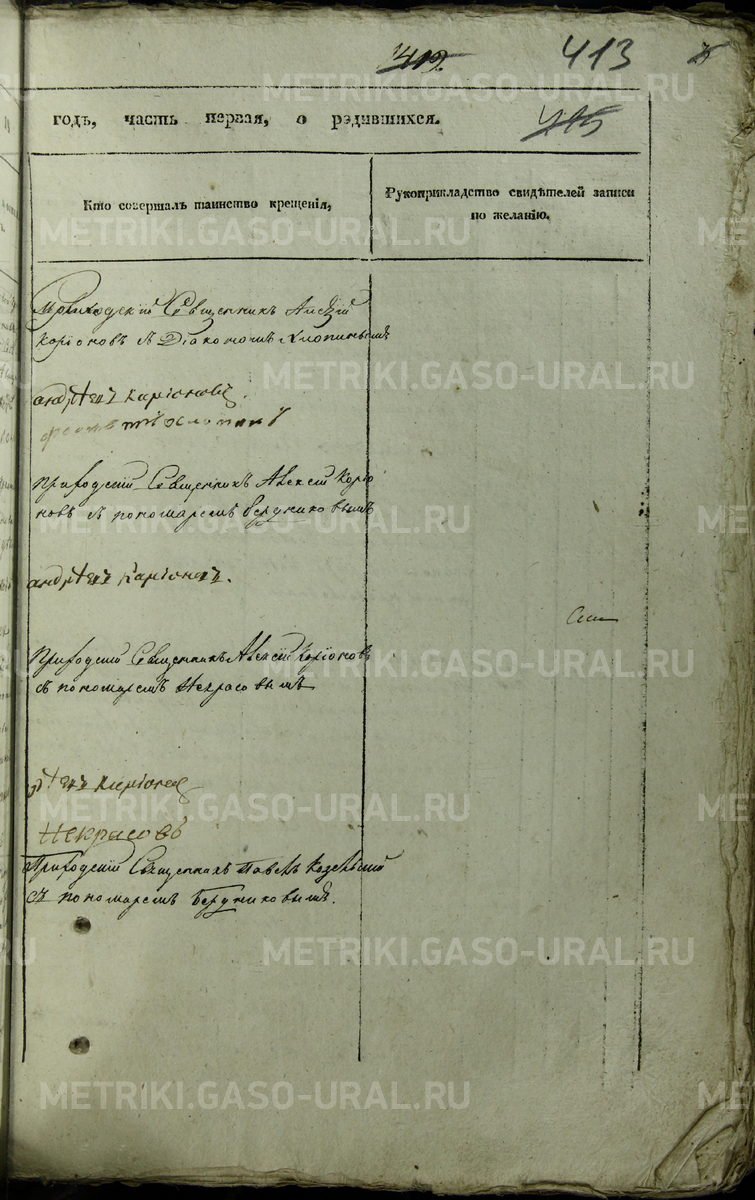 412
413
415
годъ, часть первая, о родившихся.
Кто совершалъ таинство крещенія,
Рукоприкладство свидѣтелей записи
по желанію.
Приходскій Священникъ Алексій
Коріоновъ съ Діакономъ Хлопинымъ
Андрей Каріоновъ.
Приходскій Священникъ Алексій Коріо
новъ съ пономаремъ Бердниковымъ
Андрей Каріоновъ.
Приходскій Священникъ Алексій Коріоновъ
съ пономаремъ Некрасовымъ
Каріоновъ
Некрасовъ
Приходскій Священникъ Павелъ
съ пономаремъ Бердниковымъ.
METRIKI.GASO-URAL.RU